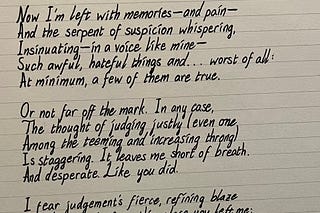 Now I'm left with memories—and pain—
And the serpent of suspicion whispering,
Insinuating—in a voice like mine—
Such awful, hateful things and.... worst of all:
At minimum, a few of them are true.

Or not far off the mark. In any case,
The thought of judging justly (even one
Among the teeming and increasing throng)
Is staggering. It leaves me short of breath.
And desperate. Like you did.

I fear judgement's fierce, refining blaze
you left me: